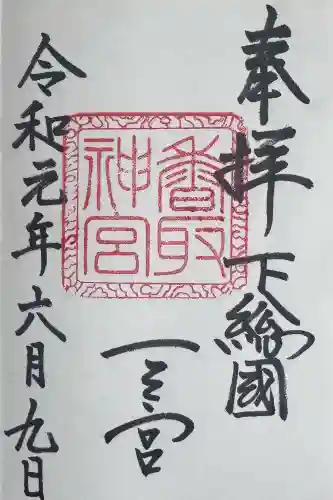 奉拝 下総國
一之宮
香取神宮
令和元年六月九日